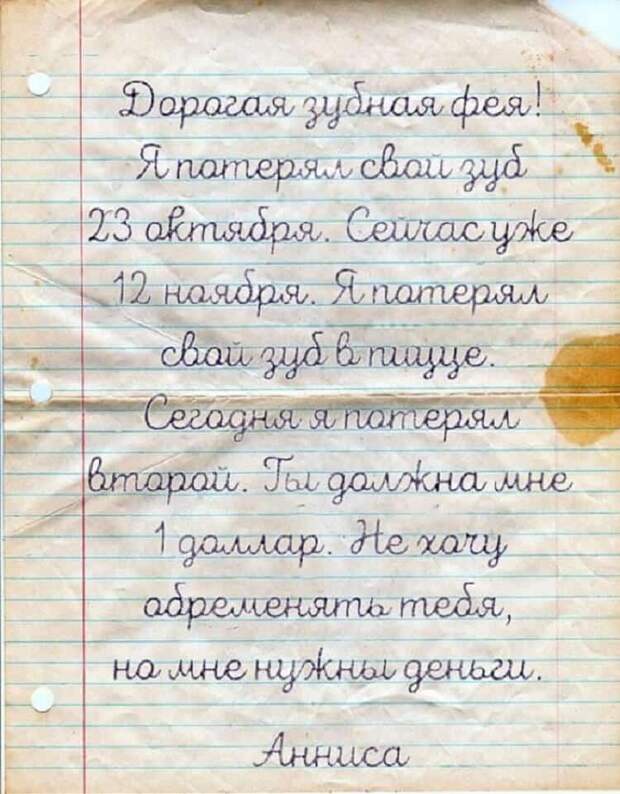 Дорогая зубная фея!
Я потерял свой зуб
23 октября. Сейчас уже
12 ноября. Я потерял
свой зуб в пицце.
Сегодня я потерял
второй. Ты должна мне
1 доллар. Не хочу
обременять тебя,
но мне нужны деньги.
Анниса